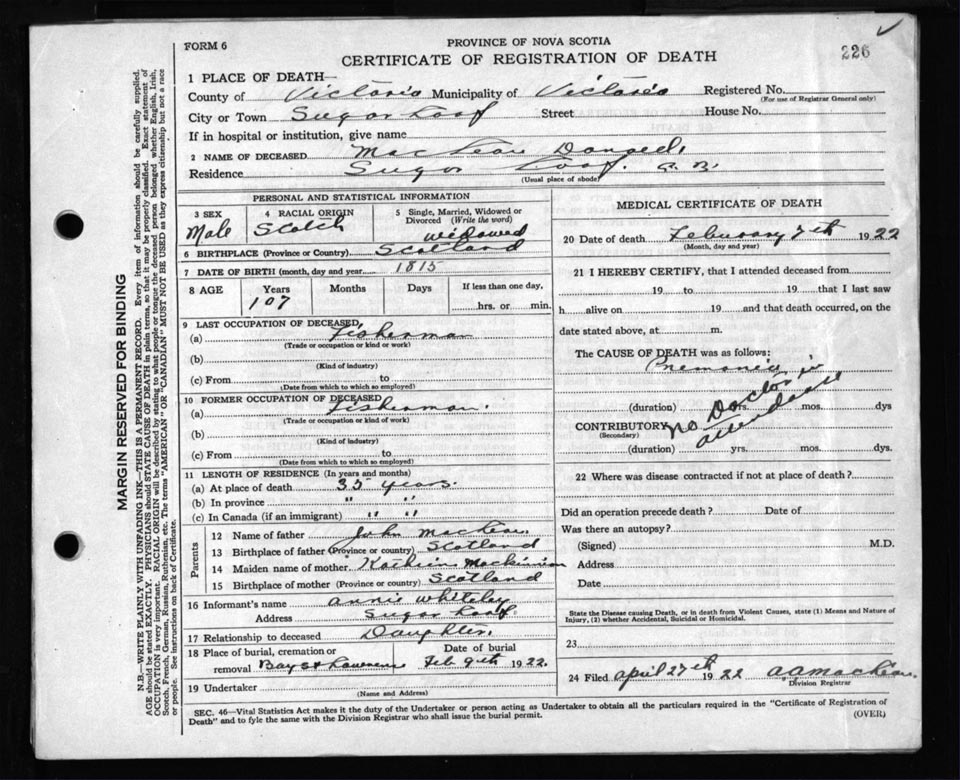 226
FORM 6
PROVINCE OF NOVA SCOTIA
CERTIFICATE OF REGISTRATION OF DEATH
1 PLACE OF DEATH—
County of Victoria Municipality of Victoria Registered No.
(For use of Registrar General only)
City or Town Sugar Loaf Street House No.
If in hospital or institution, give name
2 NAME OF DECEASED MacLean Donald
Residence Sugar Loaf.
(Usual place of abode)
PERSONAL AND STATISTICAL INFORMATION
3 SEX
Male
4 RACIAL ORIGIN
Scotch
5 Single, Married, Widowed or
Divorced (Write the word)
widowed
6 BIRTHPLACE (Province or Country) Scotland
7 DATE OF BIRTH (month, day and year) 1815
8 AGE Years Months Days If less than one day,
107 hrs. or min.
9 LAST OCCUPATION OF DECEASED
(a) Fisherman
(Trade or occupation or kind or work)
(b)
(Kind of industry)
(c) From to
(Date from which to which so employed)
10 FORMER OCCUPATION OF DECEASED
(a) Fisherman.
(Trade or occupation or kind of work)
(b)
(Kind of industry)
(c) From to
(Date from which to which so employed)
11 LENGTH OF RESIDENCE (In years and months)
(a) At place of death 35 years.
(b) In province " "
(c) In Canada (if an immigrant) " "
Parents
12 Name of father John MacLean
13 Birthplace of father (Province or country) Scotland
14 Maiden name of mother Mackinnon
15 Birthplace of mother (Province or country) Scotland
16 Informant's name Annie Whiteley
Address Sugar Loaf
17 Relationship to deceased Daughter.
18 Place of burial, cremation or
removal Bay St Lawrence
Date of burial
Feb 9th 1922.
19 Undertaker
(Name and Address)
MEDICAL CERTIFICATE OF DEATH
20 Date of death February 7th 1922
(Month, day and year)
21 I HEREBY CERTIFY, that I attended deceased from
19 to 19 that I last saw
h alive on 19 and that death occurred, on the
date stated above, at m.
The CAUSE OF DEATH was as follows:
Pnemonia
(duration) yrs. mos. dys
No Doctor in
attendance
CONTRIBUTORY
(Secondary)
(duration) yrs. mos. dys
22 Where was disease contracted if not at place of death?
Did an operation precede death? Date of
Was there an autopsy?
(Signed) M.D.
Address
Date
State the Disease causing Death, or in death from Violent Causes, state (1) Means and Nature of
Injury, (2) whether Accidental, Suicidal or Homicidal.
23
24 Filed April 27th 1922 MacLean
Division Registrar
SEC. 46—Vital Statistics Act makes it the duty of the Undertaker or person acting as Undertaker to obtain all the particulars required in the "Certificate of Registration of
Death" and to fyle the same with the Division Registrar who shall issue the burial permit.
(OVER)
MARGIN RESERVED FOR BINDING
N.B.—WRITE PLAINLY WITH UNFADING INK—THIS IS A PERMANENT RECORD. Every item of information should be carefully supplied.
AGE should be stated EXACTLY. PHYSICIANS should STATE CAUSE OF DEATH in plain terms, so that it may be properly classified. Exact statement of
OCCUPATION is very important. RACIAL ORIGIN will be described by stating to what people or tongue the deceased person belonged whether English, Irish,
Scotch, French, German, Russian, Ruthenian, etc. The terms "AMERICAN" OR "CANADIAN" MUST NOT BE USED as they express citizenship but not a race
or people. See instructions on back of Certificate.